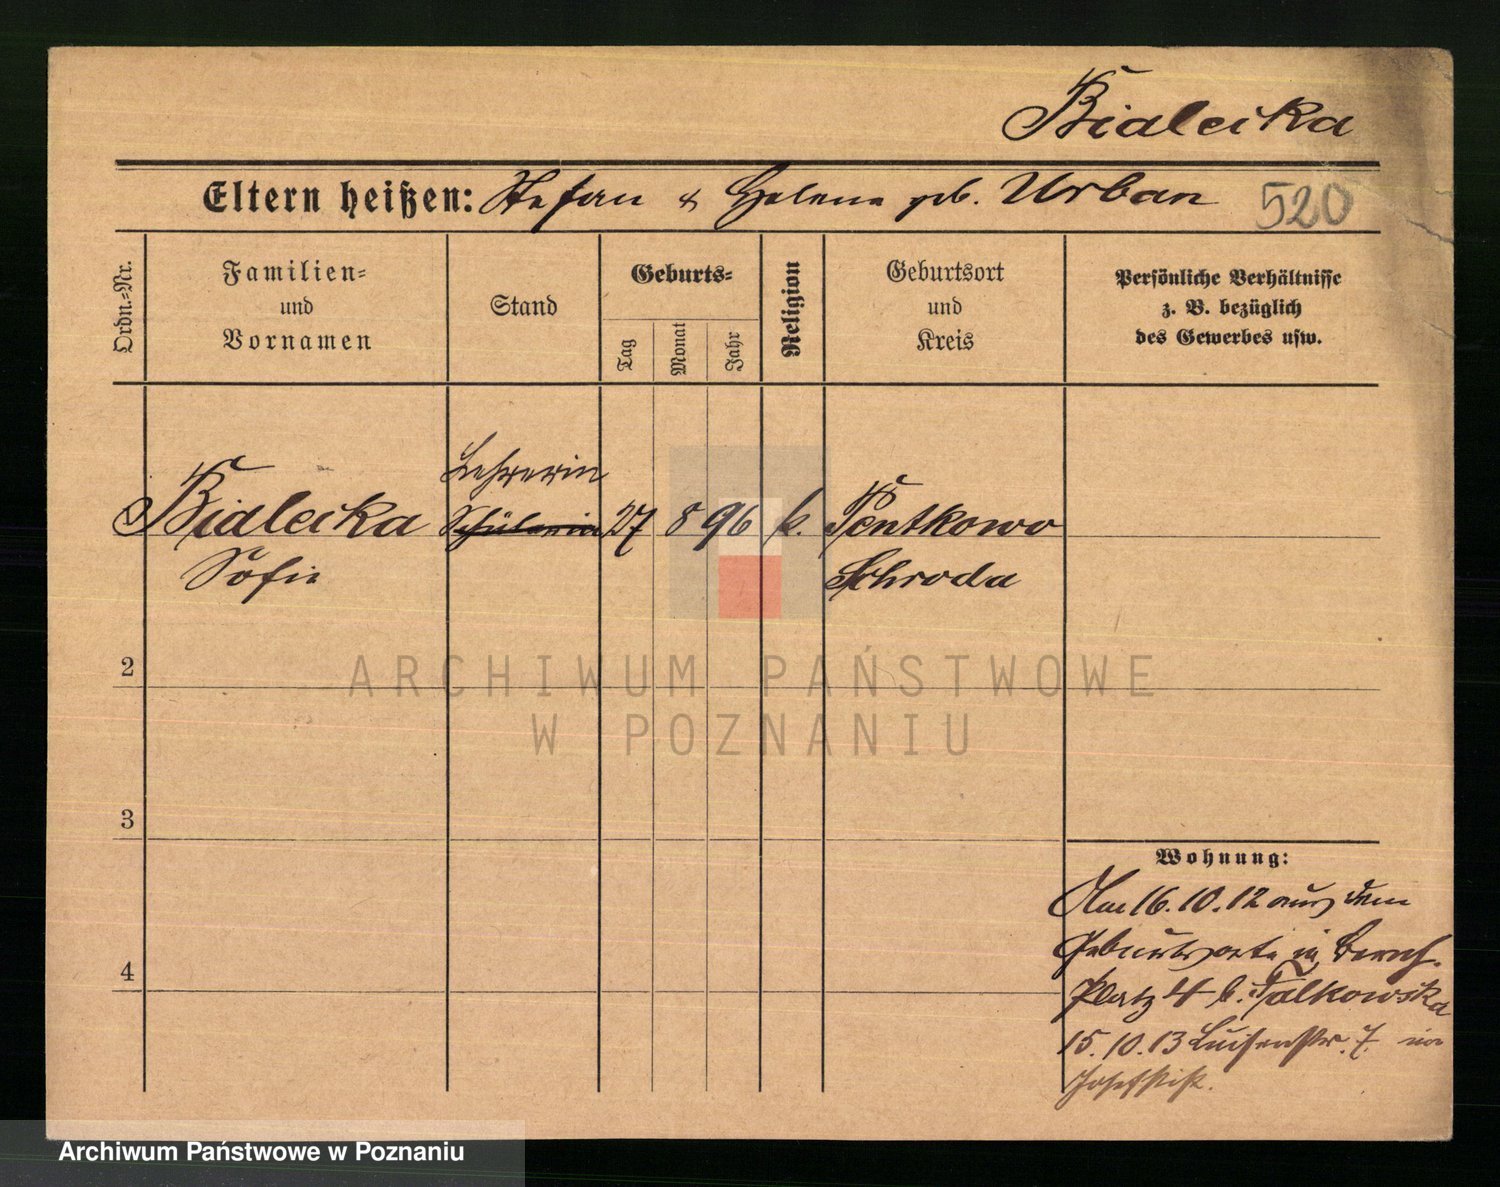 Bialecka
Eltern heißen: Stefan & Helene geb. Urban 520
Ordn.-Nr.
Familien-
und
Vornamen
Stand
Geburts-
Tag
Monat
Jahr
Religion
Geburtsort
und
Kreis
Persönliche Verhältnisse
z. B. bezüglich
des Gewerbes usw.
Lehrerin
Bialecka Schülerin 27 8 96 k. Pentkowo
Sofie Schroda
2
ARCHIWUM PAŃSTWOWE
W POZNANIU
3
Wohnung:
Am 16.10.12 aus dem
Geburtsorte in Bernh.
4
Platz 4 b. Falkowska
15.10.13 Luisenstr. 7. im
Josefstift.
Archiwum Państwowe w Poznaniu